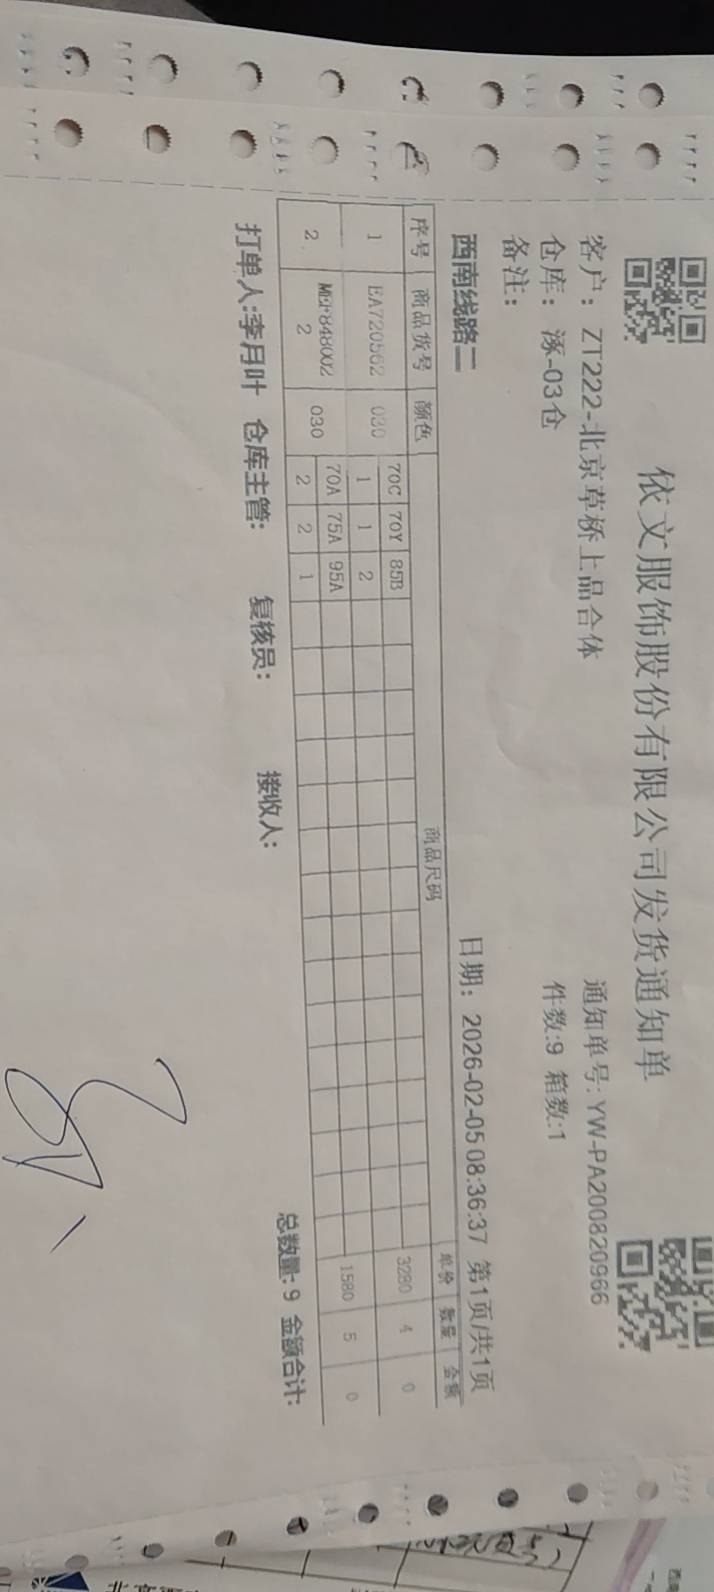 依文服饰股份有限公司发货通知单
客户：ZT222-北京草桥上品合体 通知单号：YW-PA200820966
仓库：涿-03仓 件数:9 箱数:1
备注：
西南线路二 日期：2026-02-05 08:36:37 第1页/共1页
序号 商品货号 颜色 商品尺码 单价 数量 金额
70C 70Y 85B
1 EA720562 030 1 1 2 3280 4 0
70A 75A 95A
2 MEP848002 030 2 2 1 1580 5 0
2
总数量:9 金额合计:
打单人:李月叶 仓库主管: 复核员: 接收人: